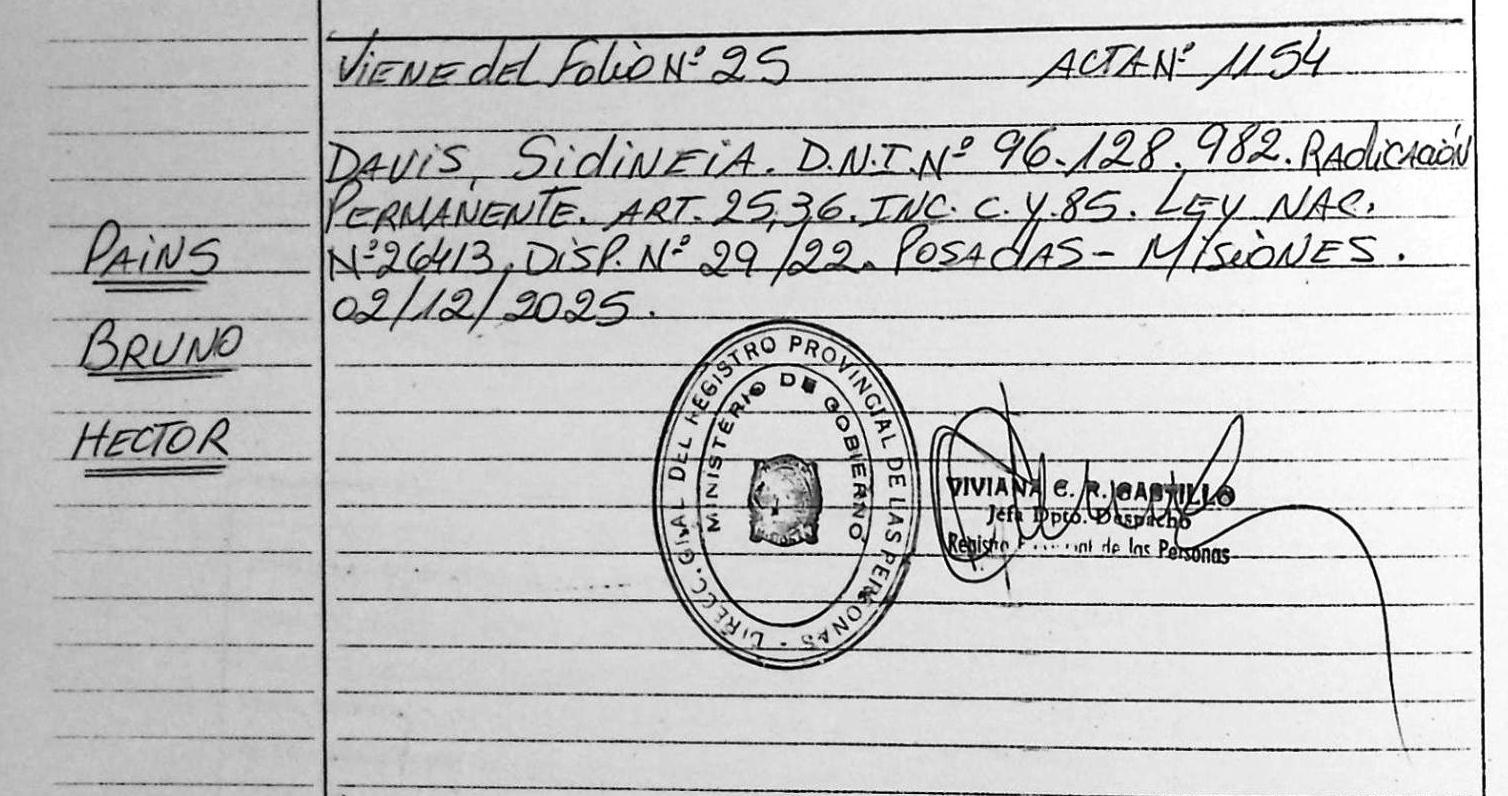 Viene del Folio Nº 25 ACTA Nº 1154
DAVIS, SidiNEiA. D.N.I.Nº 96.128.982. RAdicACiÓN
PERMANENTE. ART. 25,36. INC. C. Y.85. LEY NAC.
Nº26413, DiSP. Nº 29/22. POSAdAS - MiSiONES.
02/12/2025.
PAiNS
BRUNO
HECTOR
DIRECC. GRAL DEL REGISTRO PROVINCIAL DE LAS PERSONAS -
MINISTERIO DE GOBIERNO
VIVIANA C. R. CASTILLO
Jefa Dpto. Despacho
Registro de las Personas